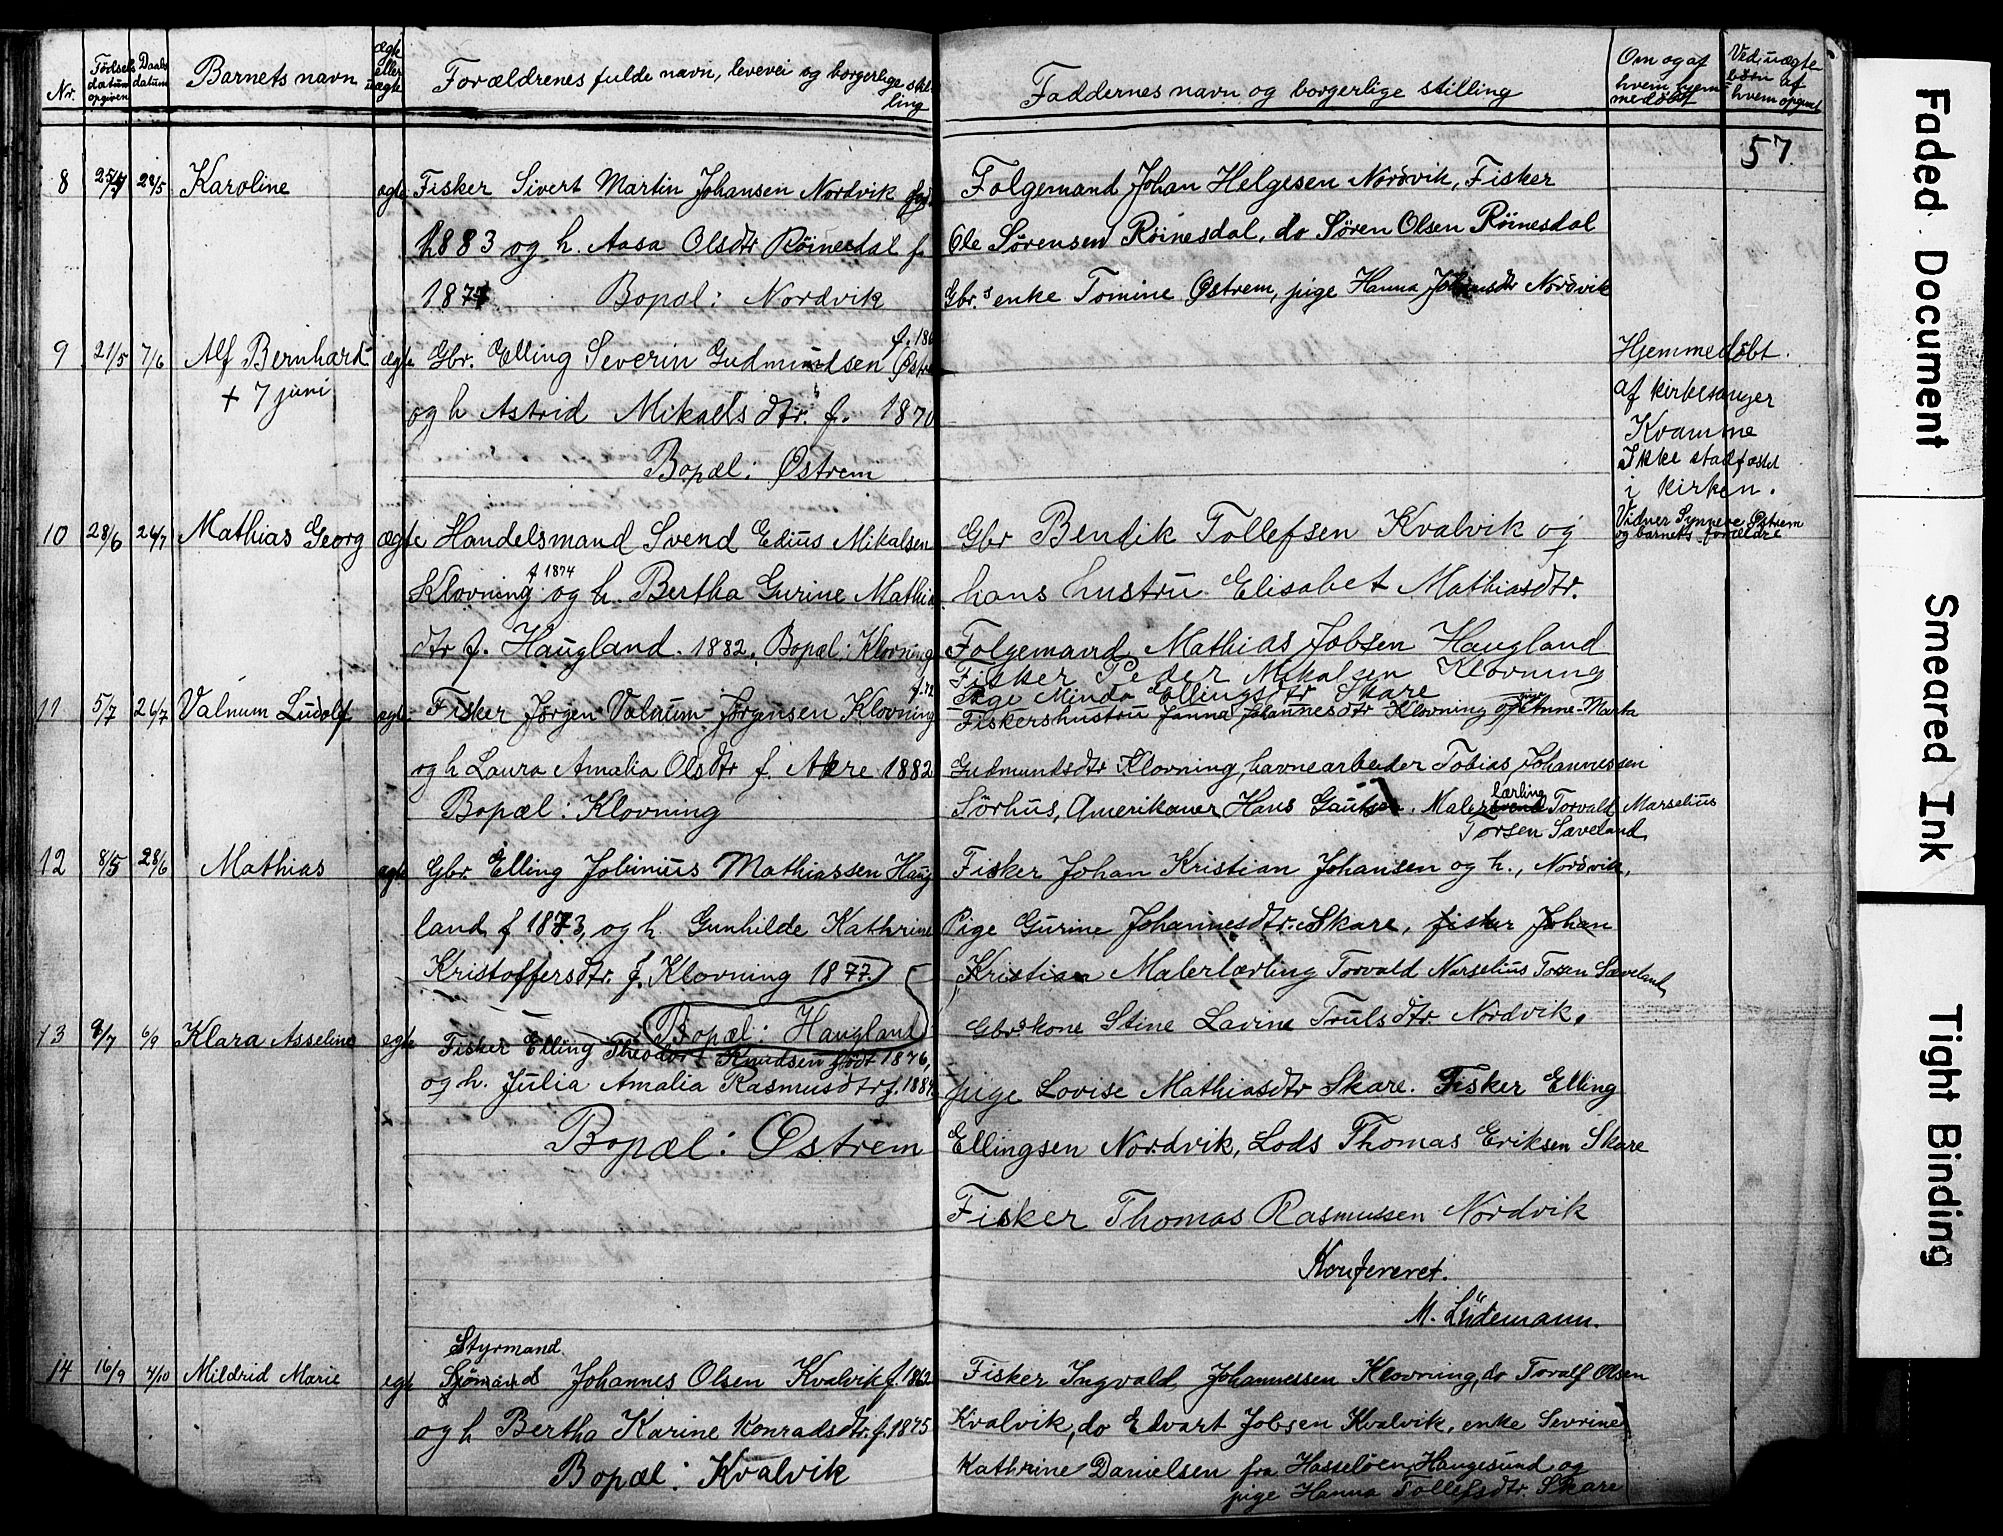 Nr.
Fødsels datum opgiven
Daabs datum
Barnets navn
ægte eller uægte
Forældrenes fulde navn, levevei og borgerlige stilling
Faddernes navn og borgerlige stilling
Om og af hvem hjemmedøbt
Ved uægte børn af hvem opgivet
57.
8 28/5 Karoline ægte Fisker Sivert Martin Johansen Nordvik
1883 og h. Aasa Olsdtr Röinesdal f.
187
Bopæl: Nordvik
Folgemand Johan Helgesen Nordvik, Fisker
Ole Sørensen Röinesdal, do Søren Olsen Röinesdal
Gbr.s enke Tomine Østrem, pige Hanna Nordvik
9 21/5 7/6 Alf Bernhard ægte Gbr. Elling Severin Gudmundsen
+ 7 juni
og h Astrid Mikaelsdtr. f. 1870
Bopæl: Østrem
Hjemmedøbt.
af kirkesanger
Kvamme
Ikke stadfæstet
i kirken.
Vidner Synneve Østrem
og barnets forældre
10 28/6 26/7 Mathias Georg ægte Handelsmand Svend Edius Mikalsen
f 1874
Klovning og h. Bertha Gurine Mathias
dtr f. Haugland. 1882. Bopæl: Klovning
Gbr Bendik Tollefsen Kvalvik og
hans hustru Elisabet Mathiasdtr.
Folgemand Mathias Jobsen Haugland
Fisker Peder Mikalsen Klovning
Pige Minda Ellingsdtr Skare
11 5/7 26/7 Valnum Ludolf ægte Fisker Jørgen Valnum Jørgensen Klovning
og h Laura Amalia Olsdtr f. Akre 1882
Bopæl: Klovning
Fiskershustru Janna Johannesdtr Klovning Anne-Marta
Gudmundsdtr Klovning, havnearbeider Tobias Johannessen
Sörhus, Amerikaner Hans Gautsen, Maler lærling Torvald Marselius
Torsen Sæveland
12 8/5 28/6 Mathias ægte Gbr Elling Jobinius Mathiassen Haug
land f 1873, og h. Gunhilde Kathrine
Kristoffersdtr. f. Klovning 1877.
Bopæl: Haugland
Fisker Johan Kristian Johansen og h., Nordvik,
Pige Gurine Johannesdtr. Skare, fisker Johan
Kristian Malerlærling Torvald Marselius Torsen Sæveland
13 8/7 6/9 Klara Asseline ægte
Fisker Elling Theodor Knudsen født 1876,
og h. Julia Amalia Rasmusdtr f. 1884
Bopæl: Østrem
Gbrskone Stine Lavine Trulsdtr. Nordvik,
pige Lovise Mathiasdtr Skare. Fisker Elling
Ellingsen Nordvik, Lods Thomas Eriksen Skare
Fisker Thomas Rasmussen Nordvik
Konfereret.
M. Lüdemann.
14 16/9 4/10 Mildrid Marie ægte
Styrmand
Sjömand Johannes Olsen Kvalvik f. 1862
og h Bertha Karine Konradsdtr. f. 1875
Bopæl: Kvalvik
Fisker Ingvald Johannessen Klovning, do Toralf Olsen
Kvalvik, do Edvart Jobsen Kvalvik, enke Sevrine
Kathrine Danielsen fra Hasseløen, Haugesund og
pige Hanna Tollefsdtr. Skare
Faded Document
Smeared Ink
Tight Binding